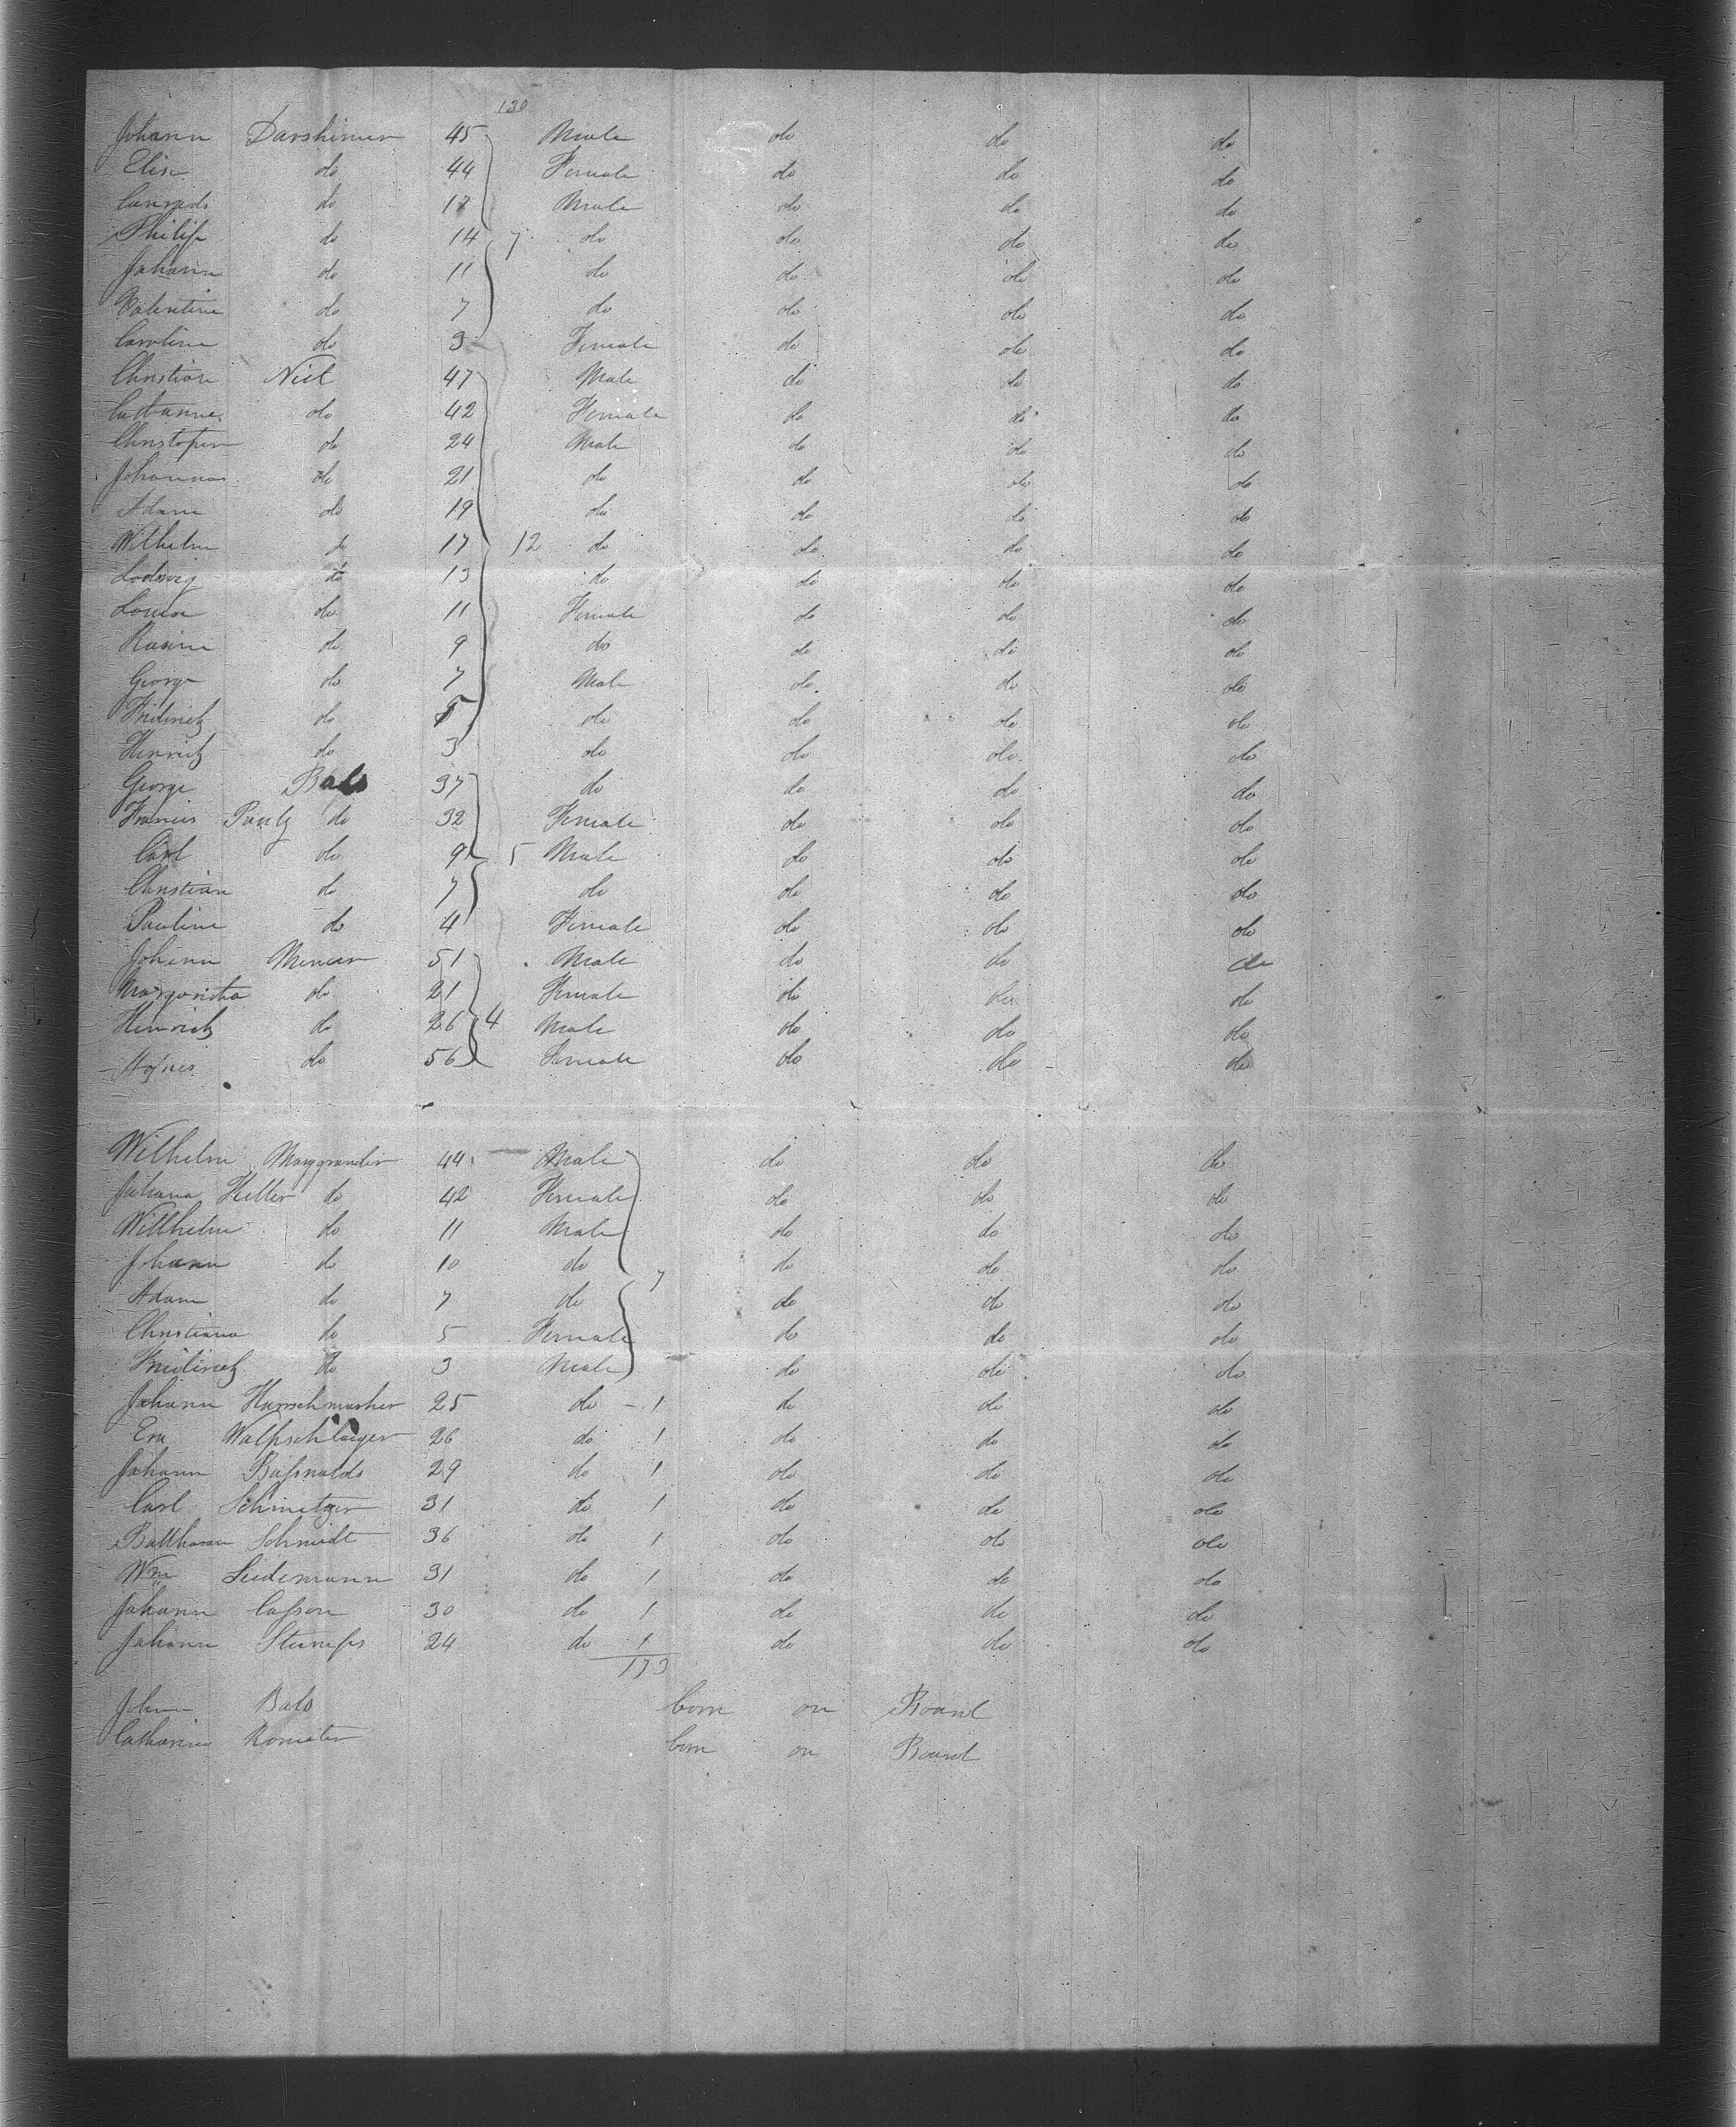 130
Johann Darshimer 45 Male do do do
Elise do 44 Female do do do
Conrad do 17 Male do do do
Philip do 14 7 do do do do
Johann do 11 do do do do
Valentine do 7 do do do do
Caroline do 3 Female do do do
Christian Niel 47 Male do do do
do 42 Female do do do
Christopher do 24 Male do do do
Johannas do 21 do do do do
Adam do 19 do do do do
Wilhelm do 17 12 do do do do
Lodwig do 13 do do do do
Louise do 11 Female do do do
Rosine do 9 do do do do
George do 7 Male do do do
Fridrich do 5 do do do do
Henrich do 3 do do do do
George Bals 37 do do do do
Francis Pauly do 32 Female do do do
Carl do 9 5 Male do do do
Christian do 7 do do do do
Pauline do 4 Female do do do
Johann 51 Male do do do
Margaretha do 21 Female do do do
Heinrich do 26 4 Male do do do
Agnes do 56 Female do do do
Wilhelm Marggrander 44 Male do do do
Juliana Heller do 42 Female do do do
Willhelm do 11 Male do do do
Johann do 10 do do do do
7
Adam do 7 do do do do
Christiana do 5 Female do do do
Fridirich do 3 Male do do do
Johann Harschmasher 25 do - 1 do do do
Eva Walfschlaiger 26 do 1 do do do
Johann 29 do 1 do do do
Carl Schmetzer 31 do 1 do do do
Balthasar Schmidt 36 do 1 do do do
Wm Seidemann 31 do 1 do do do
Johann Casson 30 do 1 do do do
Johann Stumps 24 do 1 do do do
173
Johann Bals born on Board
Catharina born on Board